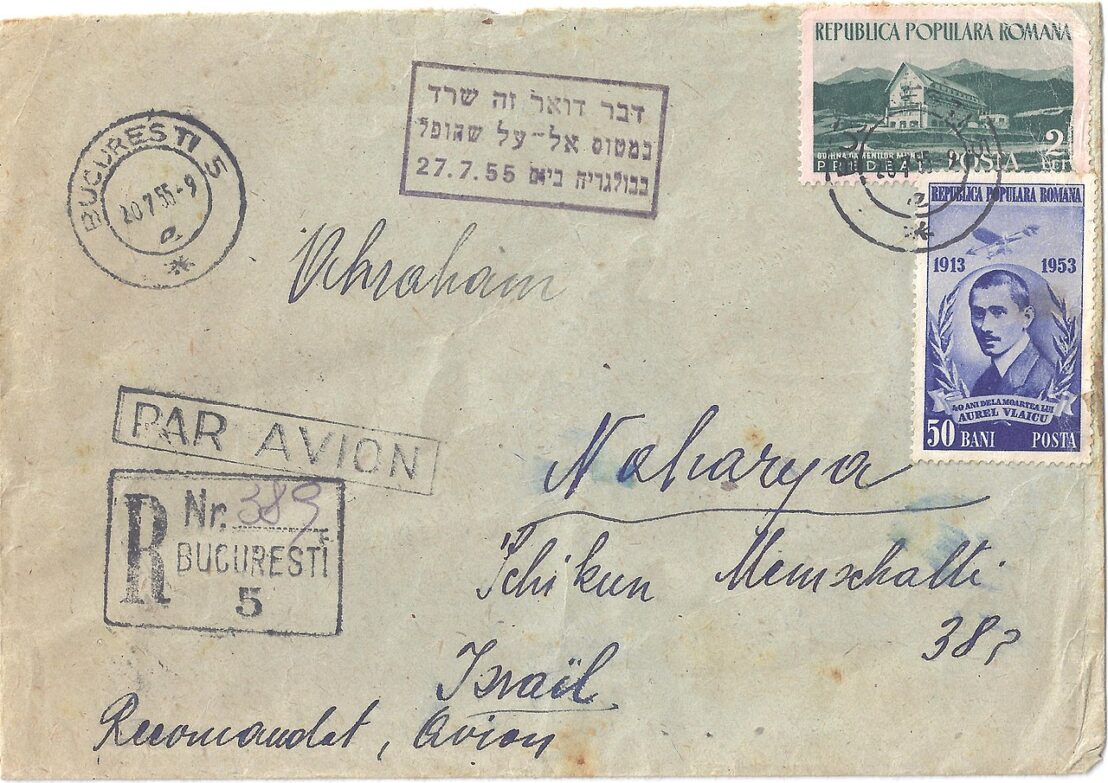 REPUBLICA POPULARA ROMANA
PREDEAL POSTA 2 LEI
BUCURESTI 5
20.7.55-9
דבר דואר זה שרד
במטוס אל-על שהופל
בבולגריה ביום 27.7.55
REPUBLICA POPULARA ROMANA
1913 1953
40 ANI DELA MOARTEA LUI
AUREL VLAICU
50 BANI POSTA
Abraham
PAR AVION
Naharya
R Nr. 389
BUCURESTI
5
Schikun Memschalti
38
Israël
Recomandat, Avion